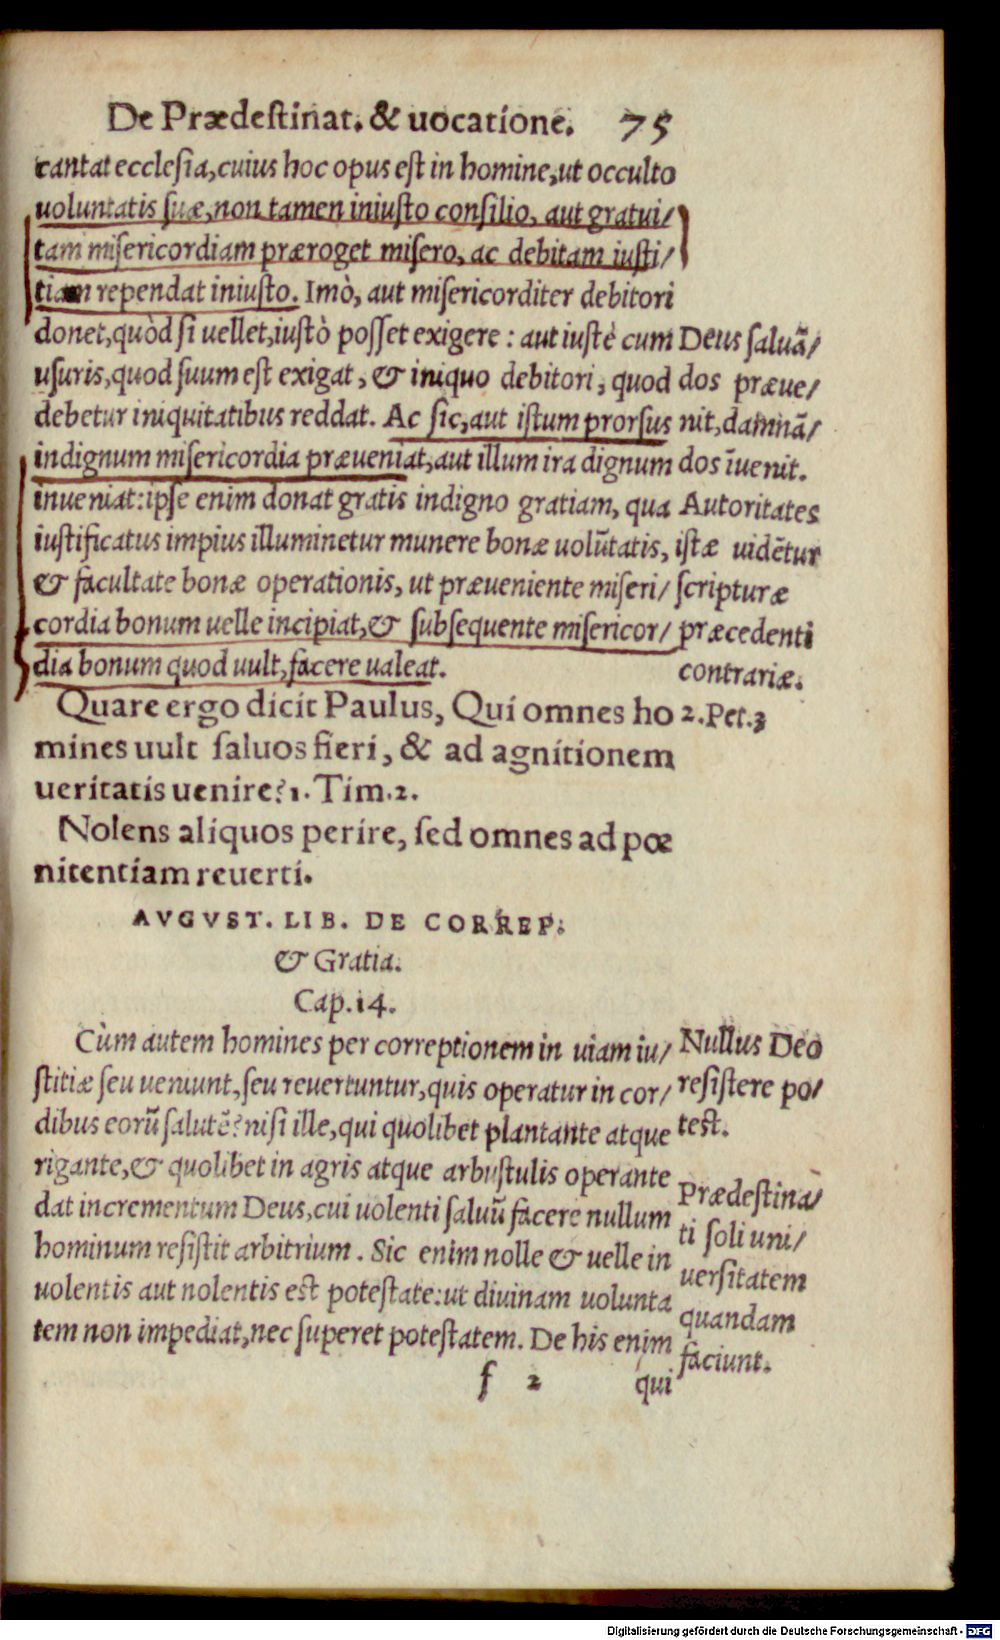 De Prædestinat. & uocatione. 75
cantat ecclesia, cuius hoc opus est in homine, ut occulto
uoluntatis suæ, non tamen iniusto consilio, aut gratui/
tam misericordiam præroget misero, ac debitam iusti/
tiam rependat iniusto. Imò, aut misericorditer debitori
donet, quòd si uellet, iustò posset exigere: aut iustè cum
usuris, quod suum est exigat, & iniquo debitori, quod
debetur iniquitatibus reddat. Ac sic, aut istum prorsus
indignum misericordia præueniat, aut illum ira dignum
inueniat: ipse enim donat gratis indigno gratiam, qua
iustificatus impius illuminetur munere bonæ uolũtatis,
& facultate bonæ operationis, ut præueniente miseri/
cordia bonum uelle incipiat, & subsequente misericor/
dia bonum quod uult, facere ualeat.
Deus saluã/
dos præue/
nit, damnã/
dos ĩuenit.
Autoritates
istæ uidẽtur
scripturæ
præcedenti
contrariæ.
Quare ergo dicit Paulus, Qui omnes ho
mines uult saluos fieri, & ad agnitionem
ueritatis uenire? 1. Tim. 2.
2. Pet. 3
Nolens aliquos perire, sed omnes ad pœ
nitentiam reuerti.
AVGVST. LIB. DE CORREP.
& Gratia.
Cap. 14.
Cùm autem homines per correptionem in uiam iu/
stitiæ seu ueniunt, seu reuertuntur, quis operatur in cor/
dibus eorũ salutẽ? nisi ille, qui quolibet plantante atque
rigante, & quolibet in agris atque arbustulis operante
dat incrementum Deus, cui uolenti saluũ facere nullum
hominum resistit arbitrium. Sic enim nolle & uelle in
uolentis aut nolentis est potestate: ut diuinam uolunta
tem non impediat, nec superet potestatem. De his enim
Nullus Deo
resistere po/
test.
Prædestina/
ti soli uni/
uersitatem
quandam
faciunt.
f 2 qui
Digitalisierung gefördert durch die Deutsche Forschungsgemeinschaft - DFG